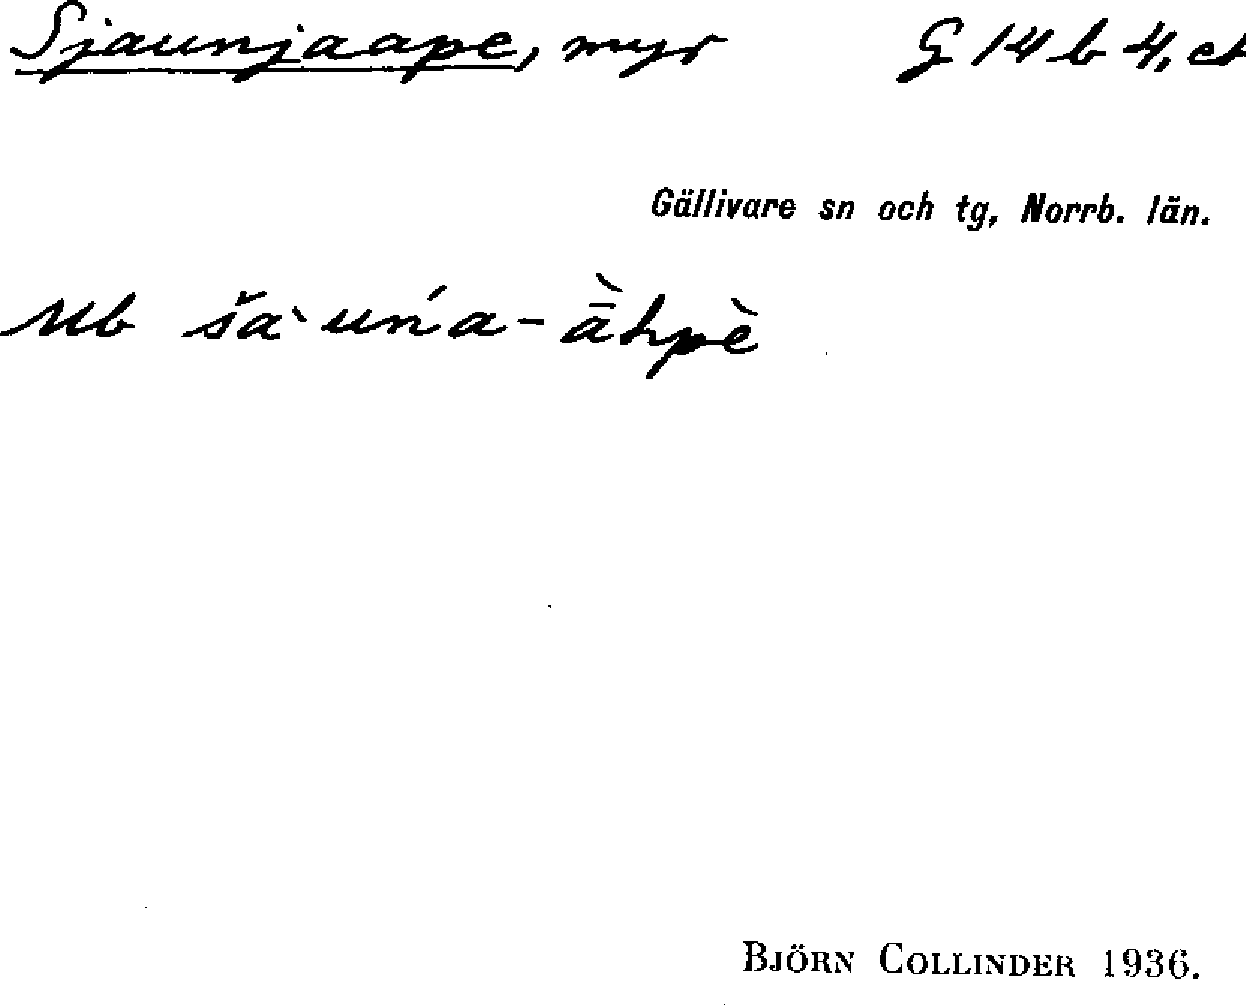 Sjaunjaape, myr G 14 b 4, c
Gällivare sn och tg, Norrb. län.
Ub šàuńa-ā̀hpè
Björn Collinder 1936.